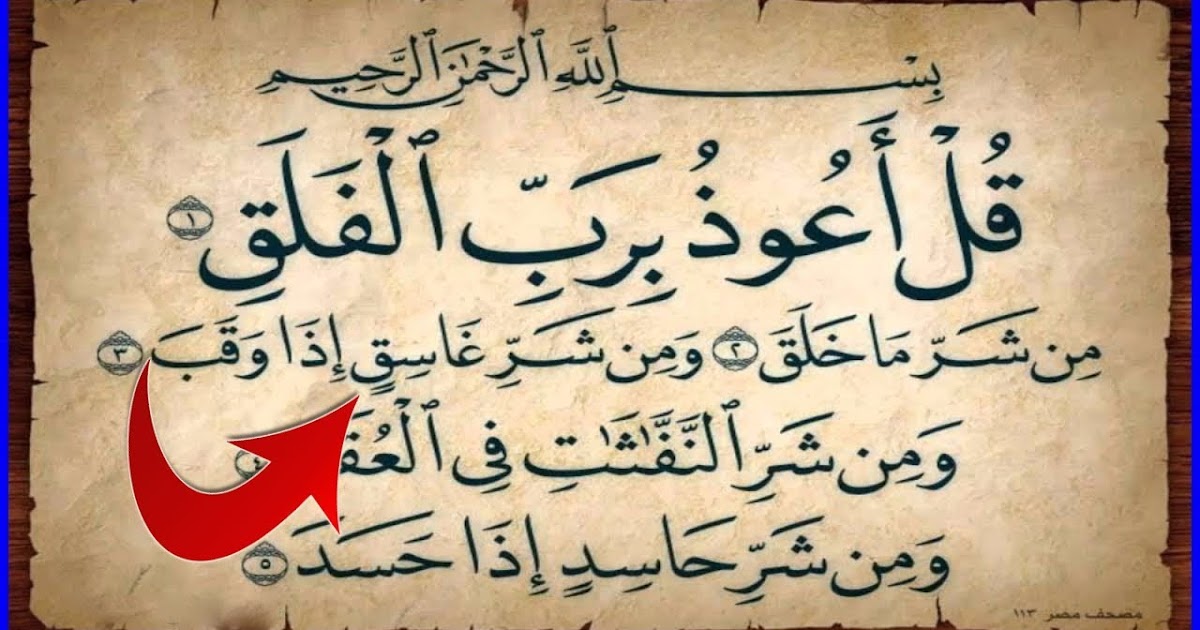 بِسْمِ ٱللَّهِ ٱلرَّحْمَٰنِ ٱلرَّحِيمِ
قُلْ أَعُوذُ بِرَبِّ ٱلْفَلَقِ ١
مِن شَرِّ مَا خَلَقَ ٢ وَمِن شَرِّ غَاسِقٍ إِذَا وَقَبَ ٣
وَمِن شَرِّ ٱلنَّفَّٰثَٰتِ فِى ٤
وَمِن شَرِّ حَاسِدٍ إِذَا حَسَدَ ٥
مصحف مصر ١١٣